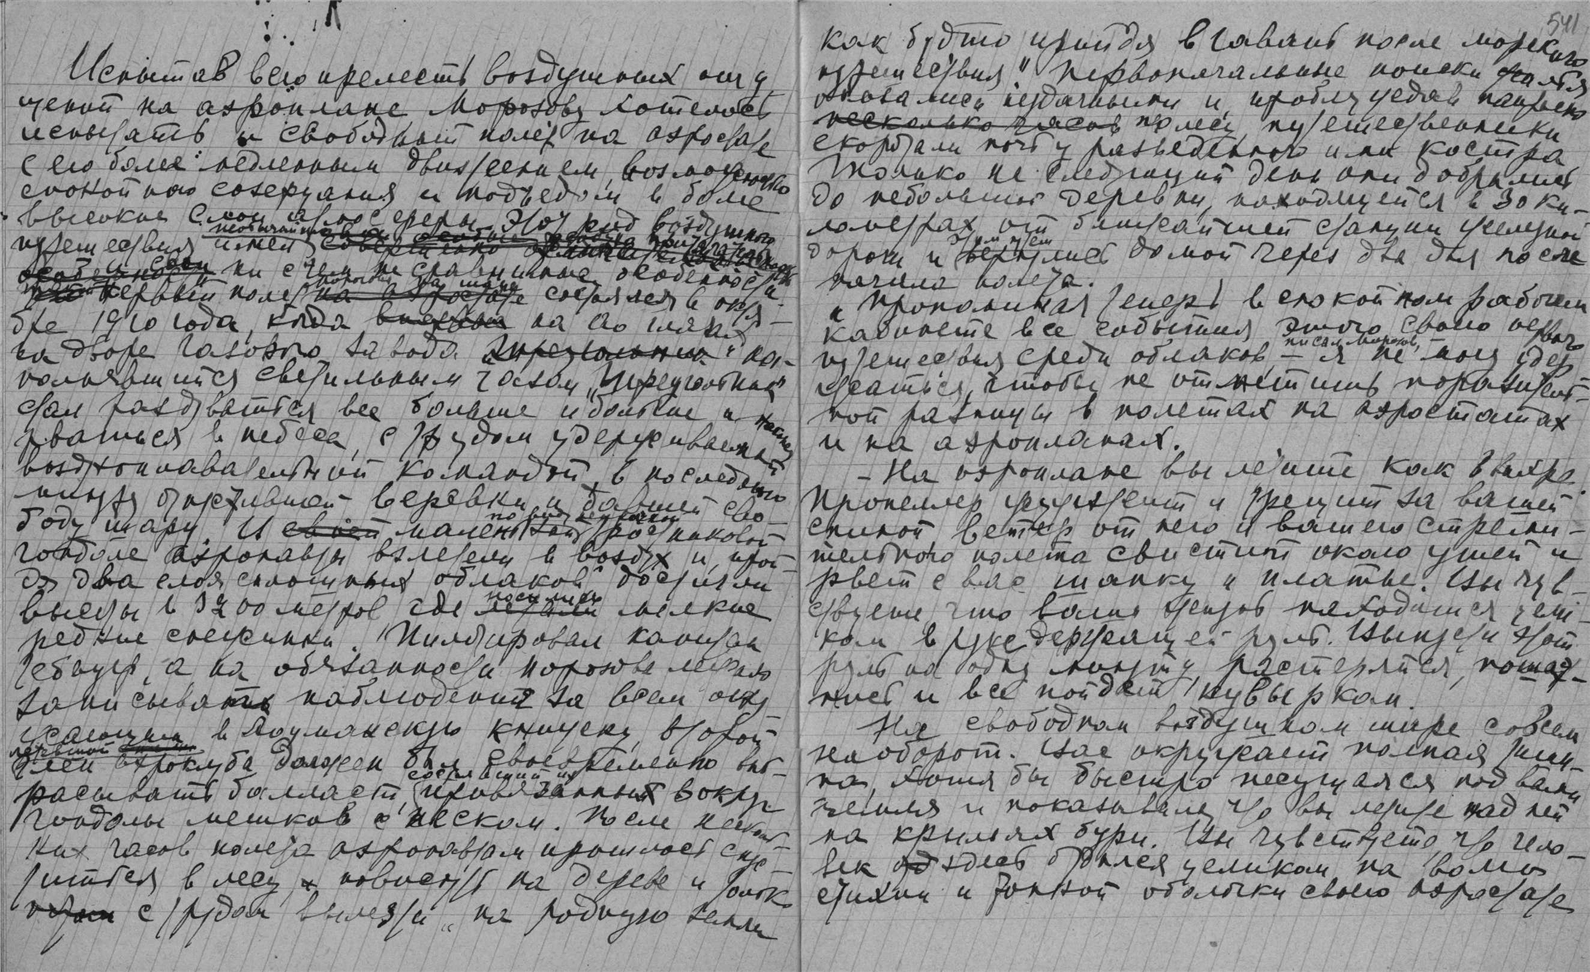 Испытав всю прелесть воздушных ощу
щений на аэроплане Морозову хотелось
испытать и свободный полет на аэростате
с его более медленным движением, возможностью
спокойного созерцания и подъедом в более
высокие слои атмосферы. Этот род воздушного
путешествия имел необычайные
и свои ни с чем не сравнимые особенности
первый полет Морозова на шаре состоялся в октя-
бре 1910 года, когда на его глазах
на дворе газового завода на-
полнявшийся светильным газом „Треугольник"
стал раздуваться все больше и больше и начал
рваться в небеса, с трудом удерживаемый
воздухоплавательной командой, в последнюю
минуту отпустившей веревки и давшей сво-
боду шару. И маленькой ростниковой
гондоле аэронавты взлетели в воздух и, прой-
дя два слоя сплошных облаков достигли
высоты в 3200 метров, где носились мелкие
редкие снежинки. Пилотировал капитан
а на обязанности Морозова лежало
записывать наблюдения за всем окру
жающим в Лоцманскую книжку, второй
член аэроклуба должен был своевременно выб-
расывать балласт, состоящий из привязанных вокруг
гондолы мешков с песком. После несколь-
ких часов полета аэронавтам пришлось спус
титься в лесу, повиснуть на дереве и только
с трудом вылезти „на родную землю
541
как будто прийдя в гавань после морского
путешествия". Первоначальные поиски жилья
оказались неудачными и, проблуждав напрасно
несколько часов по лесу, путешественники
скоротали ночь у разведенного ими костра
Только на следующий день они добрались
до небольшой деревни, находящейся в 30 ки-
лометрах от ближайшей станции железной
дороги и вернулись домой через два дня после
начала полета.
„Припоминая теперь в спокойном рабочем
кабинете все события этого своего первого
путешествия среди облаков, – писал Морозов, – я не могу удер
жаться, чтобы не отметить поразитель-
ной разницы в полетах на аэростатах
и на аэропланах.
– На аэроплане вы летите как в вихре
Пропеллер жужжит и трещит за вашей
спиной ветер от него и вашего стреми-
тельного полета свистит около ушей и
рвет с вас шапку и платье. Вы чув-
ствуете что ваша жизнь находится цели-
ком в руке держащей руль. Выпусти этот
руль на одну минуту, растеряйся, пошат-
нись и все пойдет кувырком.
На свободном воздушном шаре совсем
наоборот. Вас окружает полная тиши-
на, хотя бы быстро несущаяся под вами
земля и показывала, что вы летите над ней
на крыльях бури. Вы чувствуете что чело-
век здесь отдался целиком на волю
стихии и тонкой оболочки своего аэростата